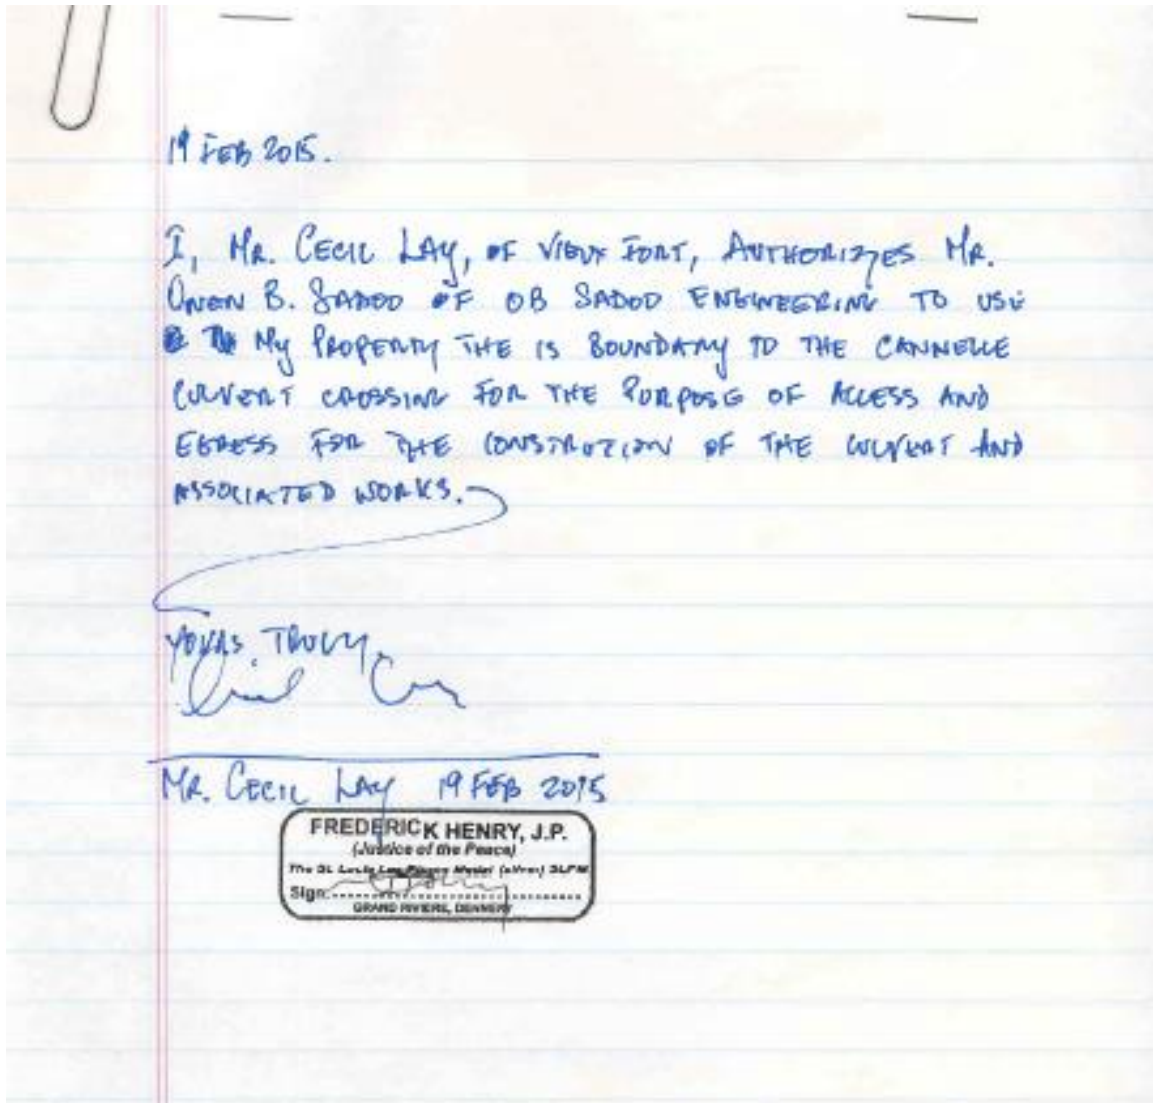 19 FEB 2015.
I, MR. CECIL LAY, OF VIEUX FORT, AUTHORIZES MR.
OWEN B. SADOO OF OB SADOO ENGINEERING TO USE
MY PROPERTY THE IS BOUNDARY TO THE CANNELLE
CULVERT CROSSING FOR THE PURPOSE OF ACCESS AND
EGRESS FOR THE CONSTRUCTION OF THE CULVERT AND
ASSOCIATED WORKS.
YOURS TRULY,
MR. CECIL LAY 19 FEB 2015
FREDERICK HENRY, J.P.
(Justice of the Peace)
The St. Lucia Les Pitons Medal (silver) SLPM
Sign:
GRAND RIVIERE, DENNERY